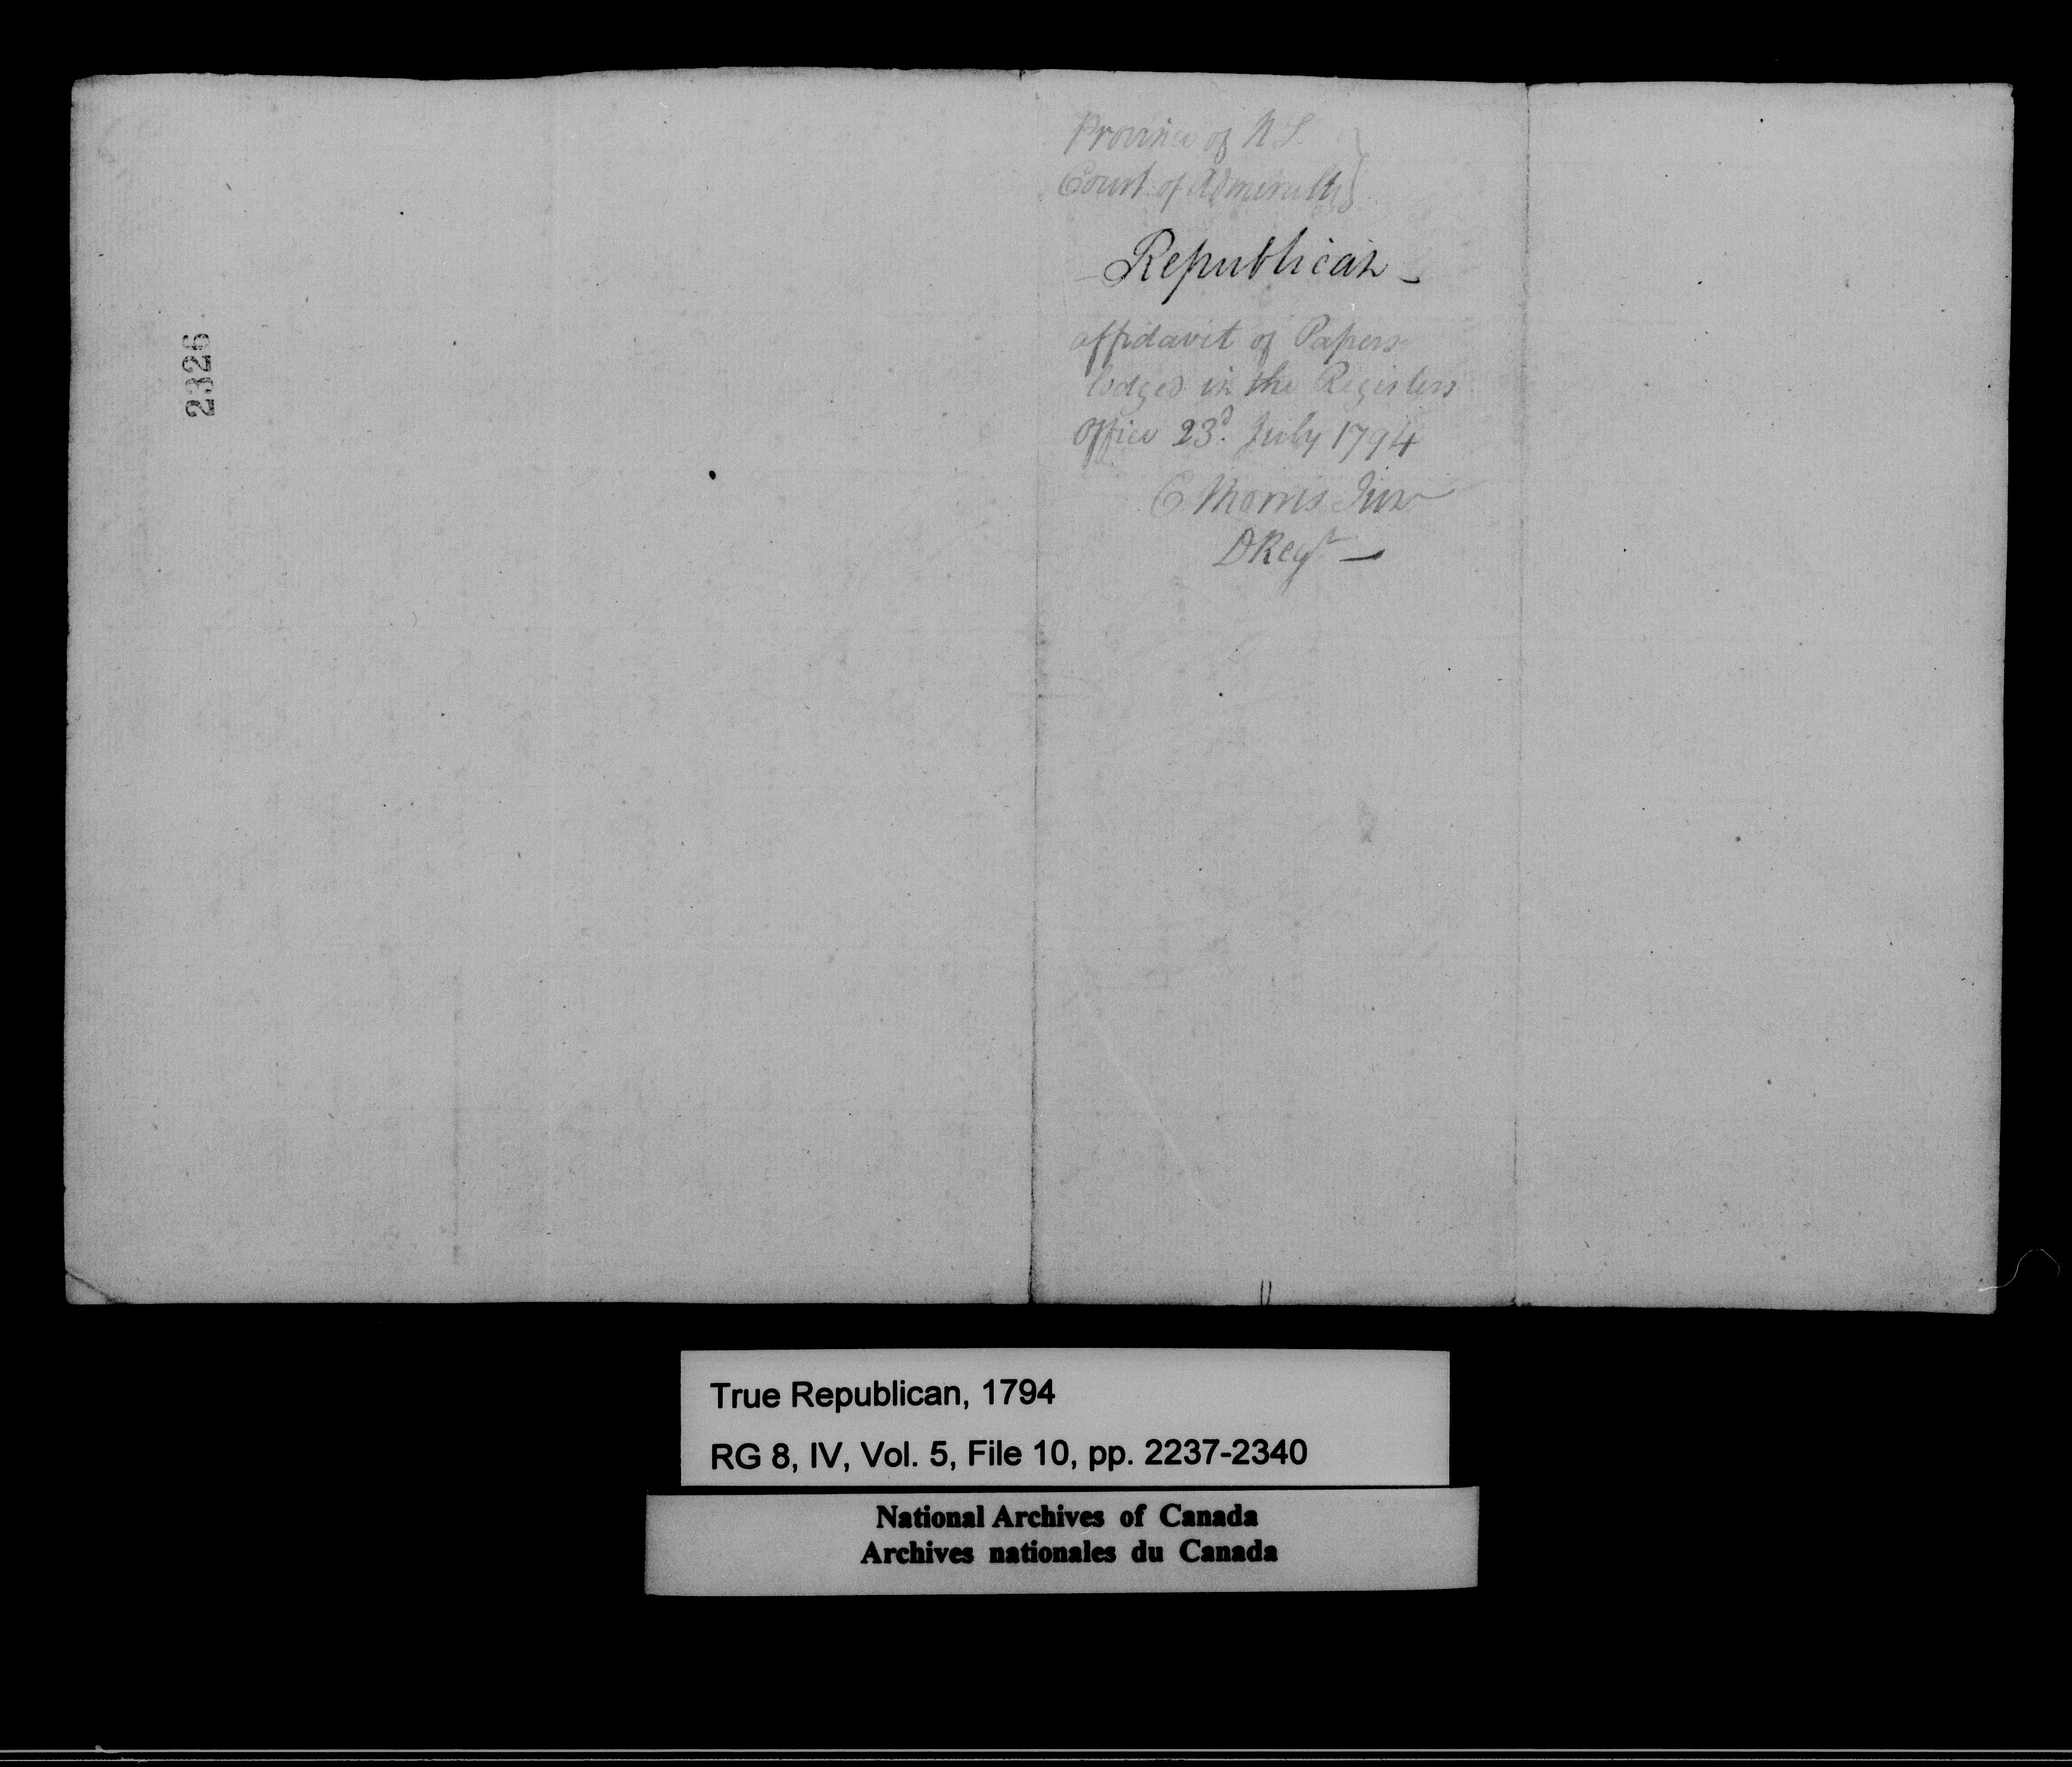 Province of N S }
Court of Admiralty }
Republican
affidavit of Papers
lodged in the Registers
Office 23d. July 1794
C Morris Junr
D Regr
2326
True Republican, 1794
RG 8, IV, Vol. 5, File 10, pp. 2237-2340
National Archives of Canada
Archives nationales du Canada